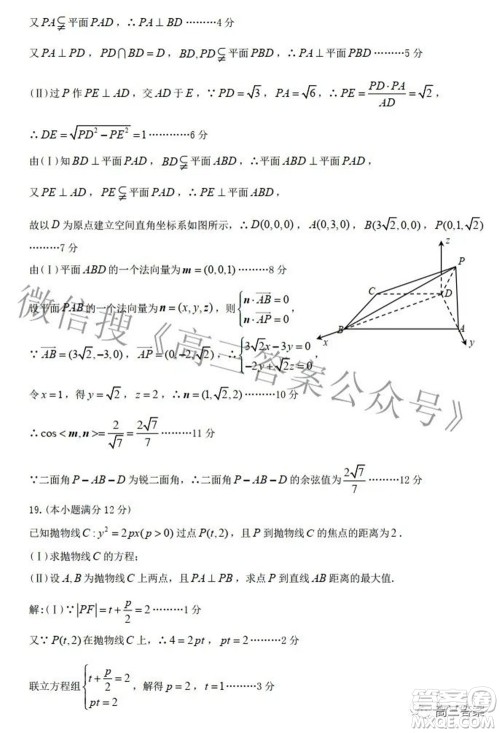 又 PA⫋平面 PAD，∴PA⊥BD………4分
又 PA⊥PD，PD⋂BD=D，BD,PD⫋平面 PBD，∴PA⊥平面 PBD………5分
(Ⅱ)过 P 作 PE⊥AD，交 AD 于 E，∵PD=√3，PA=√6，∴PE=PD·PA/AD=√2，
∴DE=√(PD²−PE²)=1………6分
由(Ⅰ)知 BD⊥平面 PAD，BD⫋平面 ABD，∴平面 PAD⊥平面 ABD，
又 PE⊥AD，PE⫋平面 PAD，∴PE⊥平面 ABD，
故以 D 为原点建立空间直角坐标系如图所示，∴D(0,0,0)，A(0,3,0)，B(3√2,0,0)，P(0,1,√2)
………7分
由(Ⅰ)平面 ABD 的一个法向量为 m=(0,0,1)………8分
设平面 PAB 的一个法向量为 n=(x,y,z)，则{n·AB=0, n·AP=0，
∵AB=(3√2,-3,0)，AP=(0,-2,√2)，∴{3√2x-3y=0, -2y+√2z=0，
令 x=1，得 y=√2，z=2，∴n=(1,√2,2)………10分
∴cos<m,n>=2/√7=2√7/7………11分
∵二面角 P-AB-D 为锐二面角，∴二面角 P-AB-D 的余弦值为 2√7/7………12分
19.(本小题满分12分)
已知抛物线 C:y²=2px(p>0)过点 P(t,2)，且 P 到抛物线 C 的焦点的距离为2．
(Ⅰ)求抛物线 C 的方程；
(Ⅱ)设 A,B 为抛物线 C 上两点，且 PA⊥PB，求点 P 到直线 AB 距离的最大值．
解：(Ⅰ)∵|PF|=t+p/2=2………1分
又∵P(t,2)在抛物线 C 上，∴4=2pt，pt=2………2分
联立方程组{t+p/2=2, pt=2，解得 p=2，t=1………3分
z
P
C
D
B
A
x
y
微信搜《高三答案公众号》
高三答案